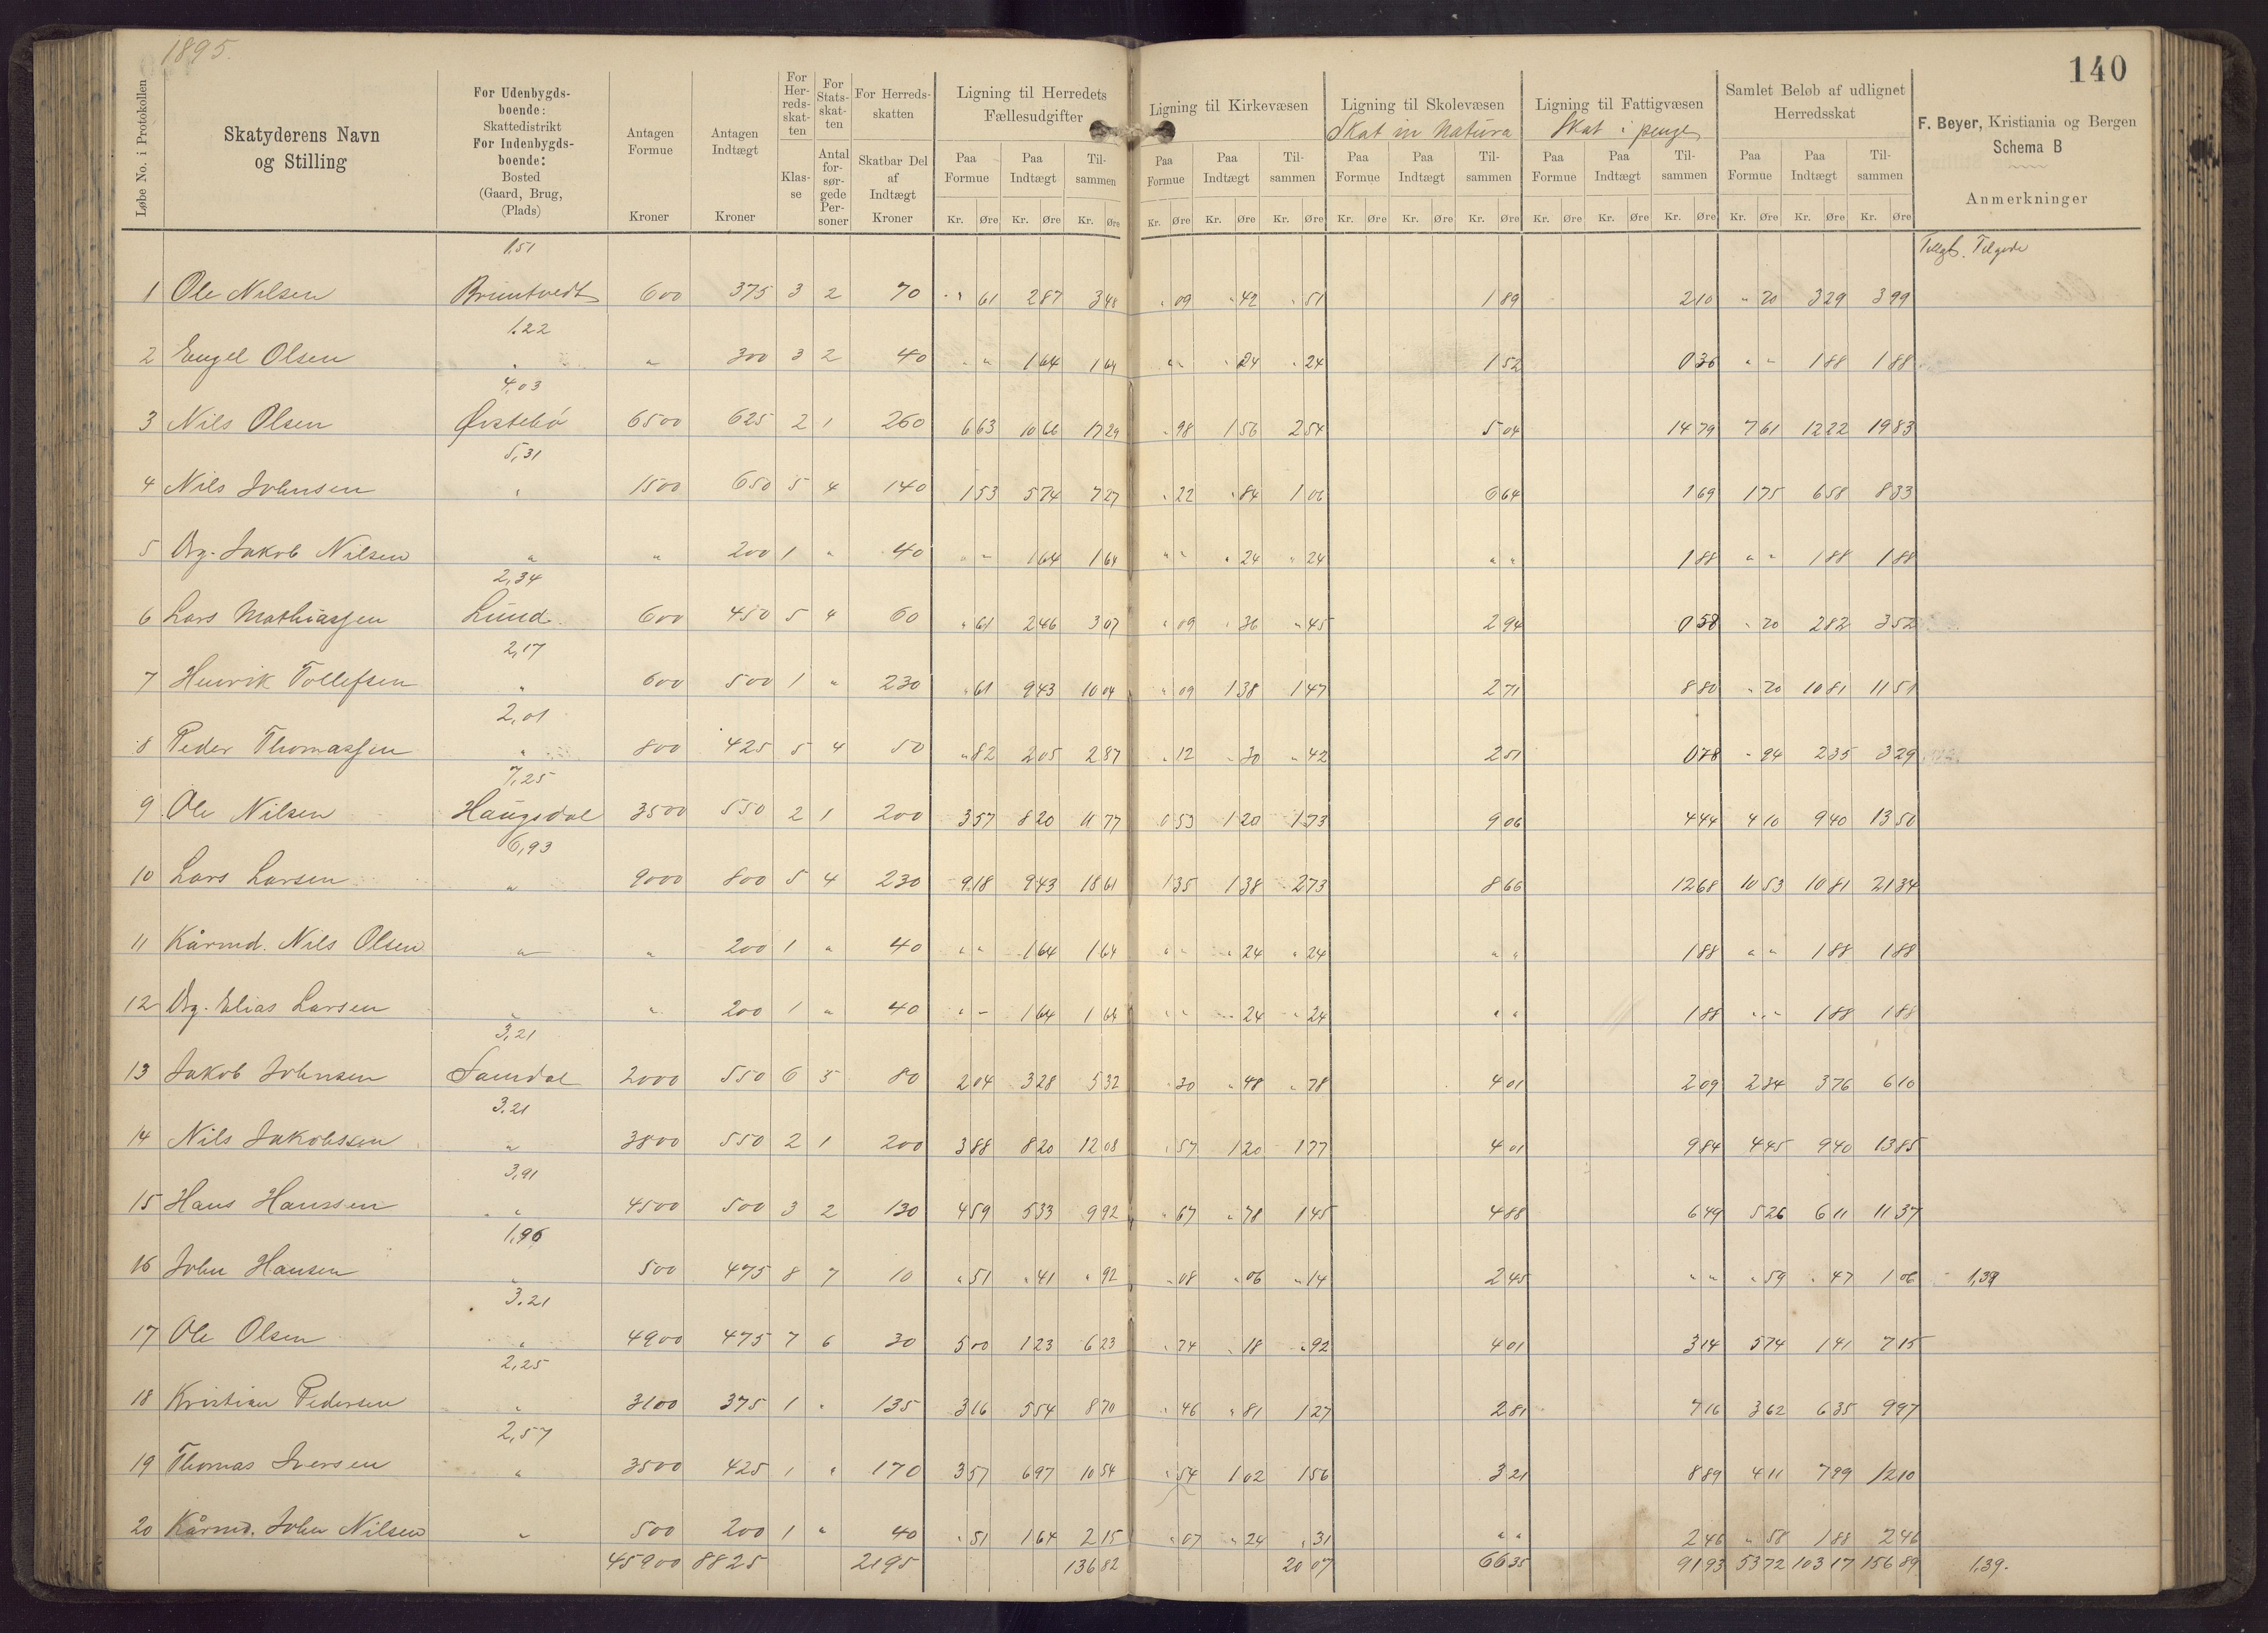 1895.
140
Løbe No. i Protokollen
Skatyderens Navn og Stilling
For Udenbygds-boende: Skattedistrikt For Indenbygds-boende: Bosted (Gaard, Brug, (Plads)
Antagen Formue Kroner
Antagen Indtægt Kroner
For Herreds-skatten Klas-se
For Stats-skat-ten Antal for-sør-gede Per-soner
For Herreds-skatten Skatbar Del af Indtægt Kroner
Ligning til Herredets Fællesudgifter
Ligning til Kirkevæsen
Ligning til Skolevæsen
Skat in Natura
Ligning til Fattigvæsen
Skat i penge
Samlet Beløb af udlignet Herredsskat
F. Beyer, Kristiania og Bergen
Schema B
Anmerkninger
Paa Formue Paa Indtægt Til-sammen Paa Formue Paa Indtægt Til-sammen Paa Formue Paa Indtægt Til-sammen Paa Formue Paa Indtægt Til-sammen Paa Formue Paa Indtægt Til-sammen
Kr. Øre Kr. Øre Kr. Øre Kr. Øre Kr. Øre Kr. Øre Kr. Øre Kr. Øre Kr. Øre Kr. Øre Kr. Øre Kr. Øre Kr. Øre Kr. Øre Kr. Øre
1,51 Tilgode
1 Ole Nilsen Bruntvedt 600 375 3 2 70 " 61 2 87 3 48 " 09 " 42 " 51 1 89 2 10 " 70 3 29 3 99
1.22
2 Engel Olsen " " 300 3 2 40 " " 1 64 1 64 " " " 24 " 24 1 52 0 36 " " 1 88 1 88
4,03
3 Nils Olsen Østebö 6500 625 2 1 260 6 63 10 66 17 29 " 98 1 56 2 54 5 04 14 79 7 61 12 22 19 83
5,31
4 Nils Johnsen " 1500 650 5 4 140 1 53 5 74 7 27 " 22 " 84 1 06 6 64 1 69 1 75 6 58 8 33
5 Ug. Jakob Nilsen " " 200 1 " 40 " " 1 64 1 64 " " " 24 " 24 " " 1 88 " " 1 88 1 88
2,34
6 Lars Mathiassen Lund 600 450 5 4 60 " 61 2 46 3 07 " 09 " 36 " 45 2 94 0 58 " 70 2 82 3 52
2,17
7 Henrik Tollefsen " 600 500 1 " 230 " 61 9 43 10 04 " 09 1 38 1 47 2 71 8 80 " 70 10 81 11 51
2,01
8 Peder Thomassen " 800 425 5 4 50 " 82 2 05 2 87 " 12 " 30 " 42 2 51 0 78 " 94 2 35 3 29
7,25
9 Ole Nilsen Haugsdal 3500 550 2 1 200 3 57 8 20 11 77 0 53 1 20 1 73 9 06 4 44 4 10 9 40 13 50
6,93
10 Lars Larsen " 9000 800 5 4 230 9 18 9 43 18 61 1 35 1 38 2 73 8 66 12 68 10 53 10 81 21 34
11 Kårmd. Nils Olsen " " 200 1 " 40 " " 1 64 1 64 " " " 24 " 24 " " 1 88 " " 1 88 1 88
12 Ug. Elias Larsen " " 200 1 " 40 " " 1 64 1 64 " " " 24 " 24 " " 1 88 " " 1 88 1 88
3,21
13 Jakob Johnsen Samdal 2000 550 6 5 80 2 04 3 28 5 32 " 30 " 48 " 78 4 01 2 09 2 34 3 76 6 10
3.21
14 Nils Jakobssen " 3800 550 2 1 200 3 88 8 20 12 08 " 57 1 20 1 77 4 01 9 84 4 45 9 40 13 85
3,91
15 Hans Hanssen " 4500 500 3 2 130 4 59 5 33 9 92 " 67 " 78 1 45 4 88 6 49 5 26 6 11 11 37
1,96
16 John Hansen " 500 475 8 7 10 " 51 " 41 " 92 " 08 " 06 " 14 2 45 " " " 59 " 47 1 06 1,39
3.21
17 Ole Olsen " 4900 475 7 6 30 5 00 1 23 6 23 " 74 " 18 " 92 4 01 3 14 5 74 1 41 7 15
2,25
18 Kristian Pedersen " 3100 375 1 " 135 3 16 5 54 8 70 " 46 " 81 1 27 2 81 7 16 3 62 6 35 9 97
2,57
19 Thomas Iversen " 3500 425 1 " 170 3 57 6 97 10 54 " 54 1 02 1 56 3 21 8 89 4 11 7 99 12 10
20 Kårmd. John Nilsen " 500 200 1 " 40 " 51 1 64 2 15 " 07 " 24 " 31 " " 2 46 " 58 1 88 2 46
45900 8825 2195 136 82 20 07 66 35 91 93 53 72 103 17 156 89 1,39.